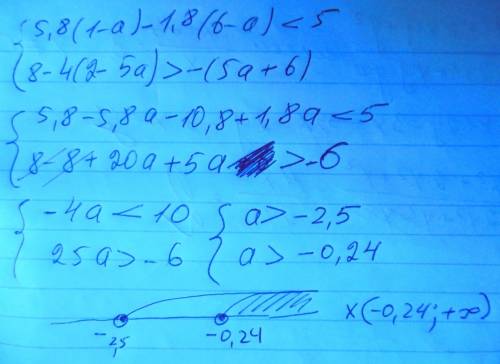 { 5,8(1-a)-1,8(6-a)<5
{ 8-4(2-5a)>-(5a+6)
{ 5,8-5,8a-10,8+1,8a<5
{ 8-8+20a+5a >-6
{ -4a<10 { a>-2,5
{ 25a>-6 { a>-0,24
-2,5 -0,24 x(-0,24;+∞)